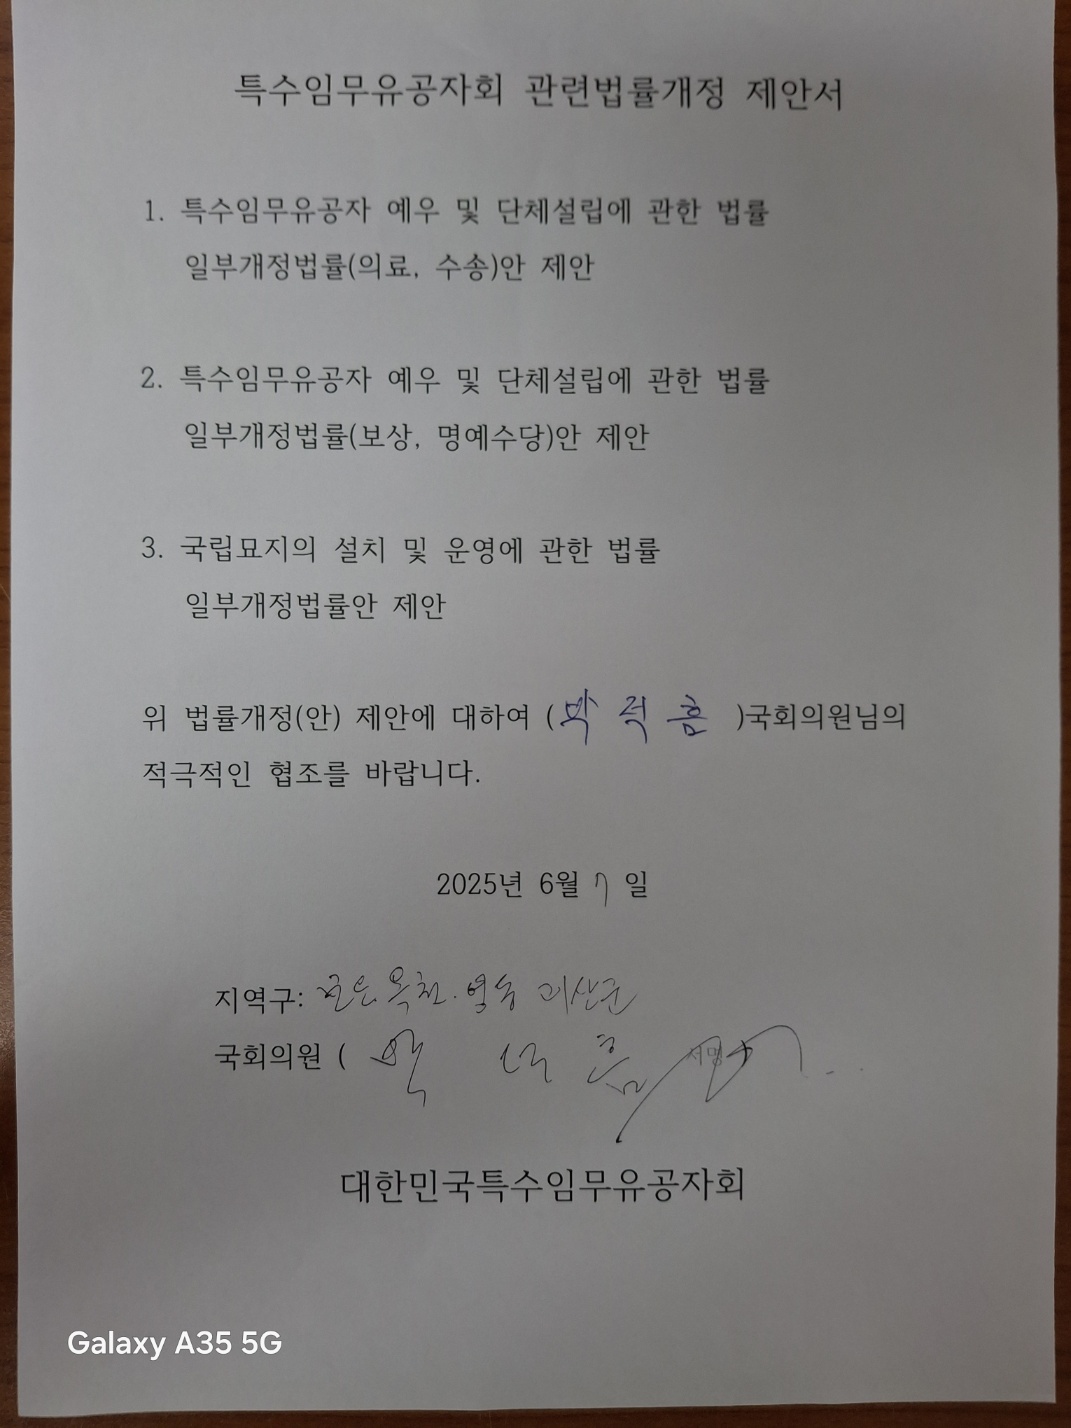 특수임무유공자회 관련법률개정 제안서
1. 특수임무유공자 예우 및 단체설립에 관한 법률
일부개정법률(의료, 수송)안 제안
2. 특수임무유공자 예우 및 단체설립에 관한 법률
일부개정법률(보상, 명예수당)안 제안
3. 국립묘지의 설치 및 운영에 관한 법률
일부개정법률안 제안
위 법률개정(안) 제안에 대하여 (박덕흠)국회의원님의
적극적인 협조를 바랍니다.
2025년 6월 7일
지역구: 보은 옥천·영동 괴산군
국회의원 ( 박덕흠 서명
대한민국특수임무유공자회
Galaxy A35 5G